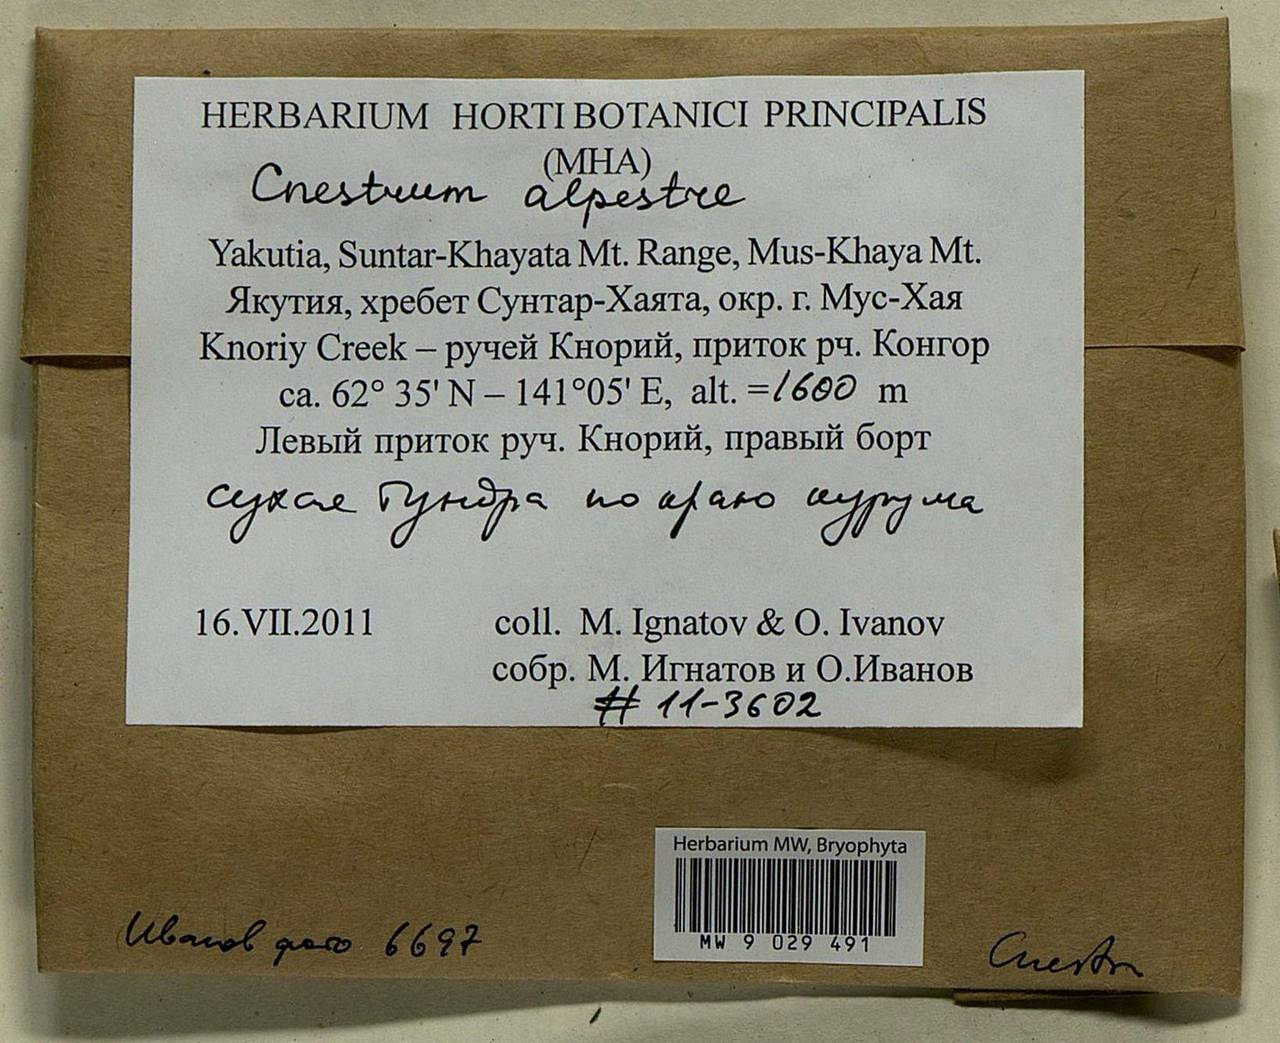 HERBARIUM HORTI BOTANICI PRINCIPALIS
(MHA)
Cnestrum alpestre
Yakutia, Suntar-Khayata Mt. Range, Mus-Khaya Mt.
Якутия, хребет Сунтар-Хаята, окр. г. Мус-Хая
Knoriy Creek – ручей Кнорий, приток рч. Конгор
ca. 62° 35' N – 141°05' E, alt. =1600 m
Левый приток руч. Кнорий, правый борт
сухая тундра по краю курума
16.VII.2011 coll. M. Ignatov & O. Ivanov
собр. М. Игнатов и О.Иванов
# 11-3602
Herbarium MW, Bryophyta
MW 9 029 491
Иванов фото 6697
Cnestr